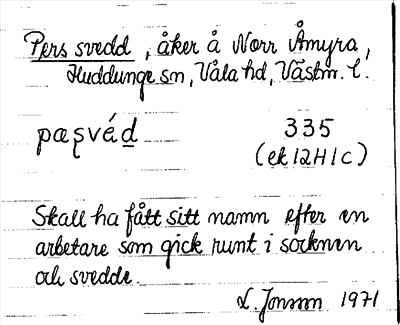 Pers svedd, åker å Norr Åmyra,
Huddunge sn, Våla hd, Västm. l.
pæʂvéd 335
(ek 12H1c)
Skall ha fått sitt namn efter en
arbetare som gick runt i socknen
och svedde.
L. Jonsson 1971